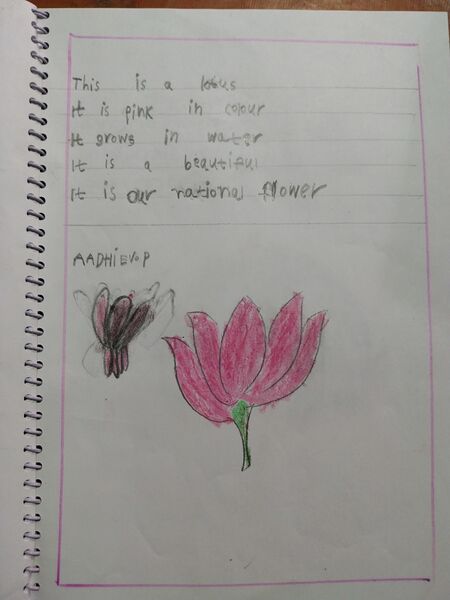 This is a lotus
It is pink in colour
It grows in water
It is a beautiful
It is our national flower
AADHIEVOP